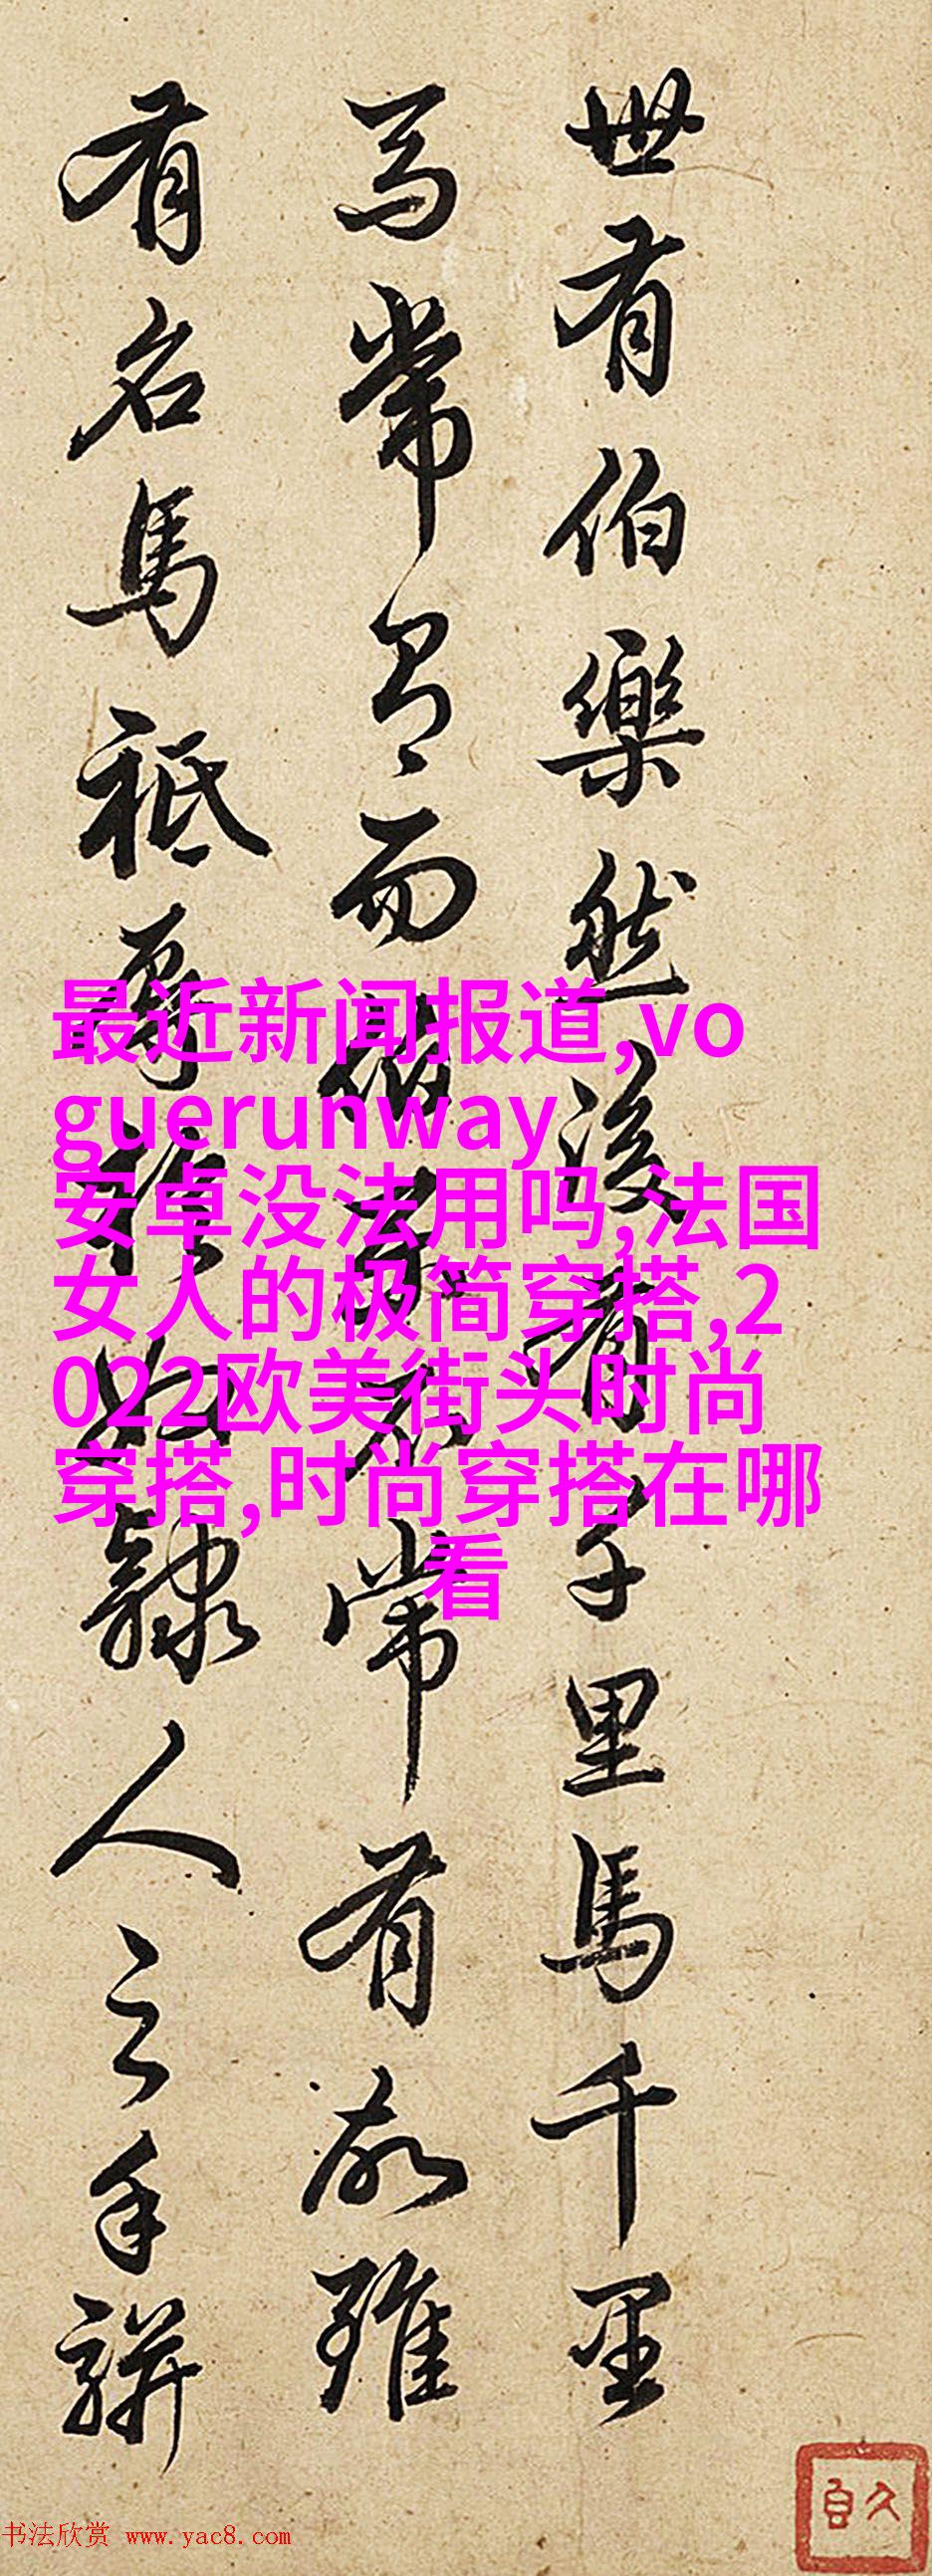 世有伯樂然後有千里馬千里
馬常有而伯樂不常有故雖
有名馬祗辱於奴隸人之手駢
最近新闻报道,vo
guerunway
安卓没法用吗,法国
女人的极简穿搭,2
022欧美街头时尚
穿搭,时尚穿搭在哪
看
书法欣赏 www.yac8.com